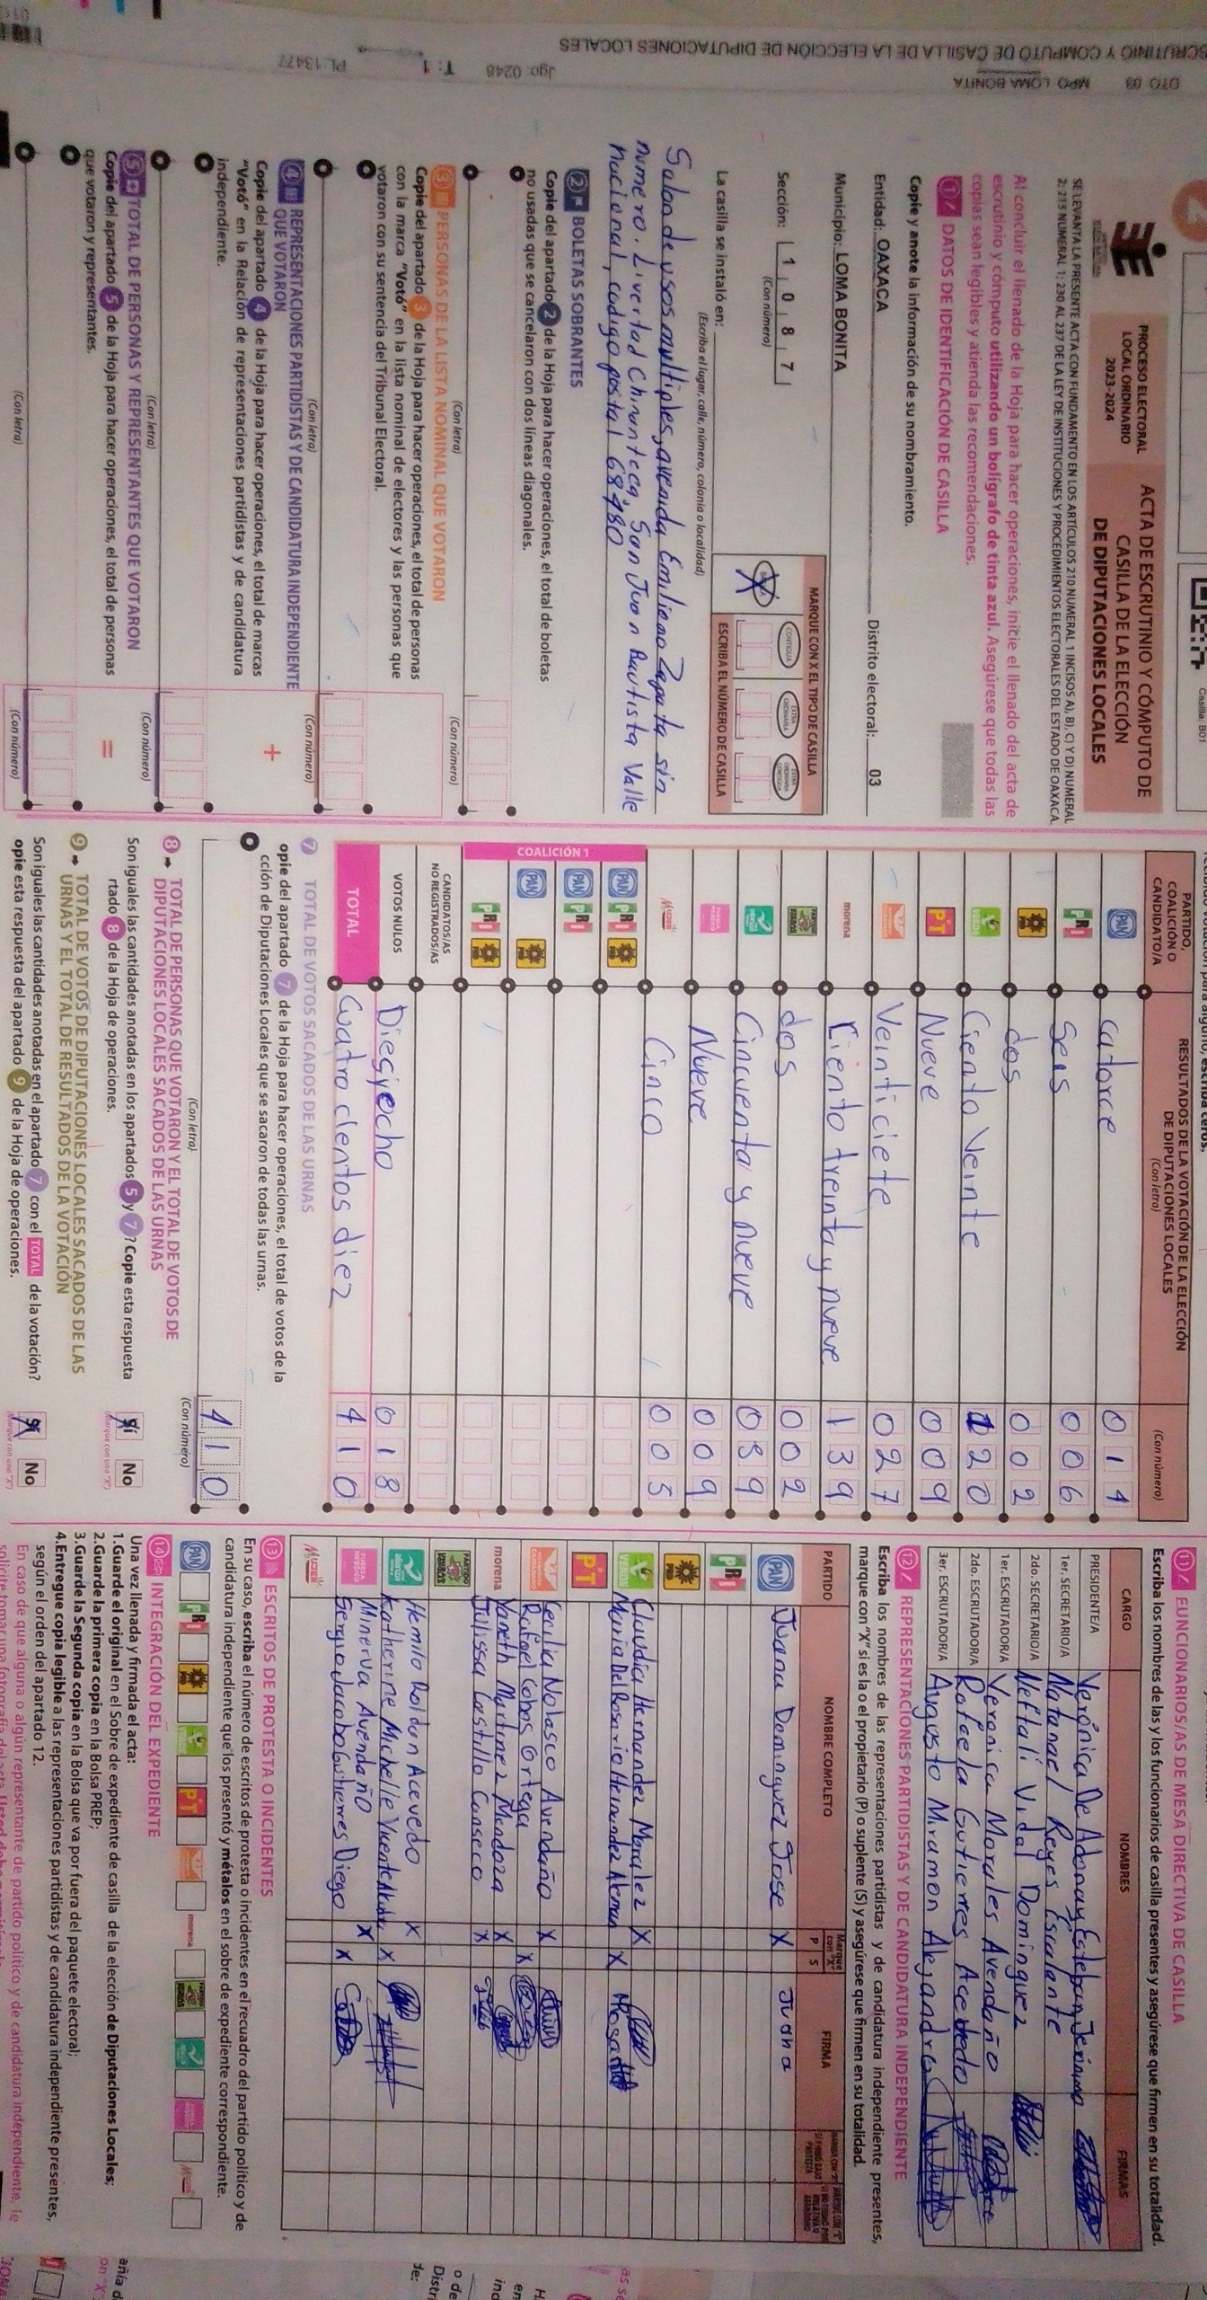 DTO 03 MPO LOMA BONITA
ESCRUTINIO Y CÓMPUTO DE CASILLA DE LA ELECCIÓN DE DIPUTACIONES LOCALES
Jgo: 0248 T: 1 PL 13477
Casilla: B01
2
PROCESO ELECTORAL
LOCAL ORDINARIO
2023-2024
ACTA DE ESCRUTINIO Y CÓMPUTO DE
CASILLA DE LA ELECCIÓN
DE DIPUTACIONES LOCALES
SE LEVANTA LA PRESENTE ACTA CON FUNDAMENTO EN LOS ARTÍCULOS 210 NUMERAL 1 INCISOS A), B), C) Y D) NUMERAL
2; 213 NUMERAL 1; 230 AL 237 DE LA LEY DE INSTITUCIONES Y PROCEDIMIENTOS ELECTORALES DEL ESTADO DE OAXACA.
Al concluir el llenado de la Hoja para hacer operaciones, inicie el llenado del acta de
escrutinio y cómputo utilizando un bolígrafo de tinta azul. Asegúrese que todas las
copias sean legibles y atienda las recomendaciones.
1 DATOS DE IDENTIFICACIÓN DE CASILLA
Copie y anote la información de su nombramiento.
Entidad: OAXACA Distrito electoral: 03
Municipio: LOMA BONITA
Sección: 1 0 8 7
(Con número)
MARQUE CON X EL TIPO DE CASILLA
X
ESCRIBA EL NÚMERO DE CASILLA
La casilla se instaló en:
(Escriba el lugar, calle, número, colonia o localidad)
Salon de usos multiples, avenida Emiliano Zapata sin
numero. Livertad Chinanteca, San Juan Bautista Valle
nacional, codigo postal 68480
2 BOLETAS SOBRANTES
Copie del apartado 2 de la Hoja para hacer operaciones, el total de boletas
no usadas que se cancelaron con dos líneas diagonales.
(Con letra) (Con número)
3 PERSONAS DE LA LISTA NOMINAL QUE VOTARON
Copie del apartado 3 de la Hoja para hacer operaciones, el total de personas
con la marca "Votó" en la lista nominal de electores y las personas que
votaron con su sentencia del Tribunal Electoral.
(Con letra) (Con número)
4 REPRESENTACIONES PARTIDISTAS Y DE CANDIDATURA INDEPENDIENTE
QUE VOTARON
Copie del apartado 4 de la Hoja para hacer operaciones, el total de marcas
"Votó" en la Relación de representaciones partidistas y de candidatura
independiente.
+
(Con letra) (Con número)
5 TOTAL DE PERSONAS Y REPRESENTANTES QUE VOTARON
Copie del apartado 5 de la Hoja para hacer operaciones, el total de personas
que votaron y representantes.
=
(Con letra) (Con número)
PARTIDO,
COALICIÓN O
CANDIDATO/A
RESULTADOS DE LA VOTACIÓN DE LA ELECCIÓN
DE DIPUTACIONES LOCALES
(Con letra)
(Con número)
PAN catorce 014
PRI seis 006
PRD dos 002
VERDE Ciento veinte 120
PT Nueve 009
Veinticiete 027
morena ciento treinta y nueve 139
dos 002
Cincuenta y nueve 059
Nueve 009
Mujer Cinco 005
COALICIÓN 1
PAN PRI PRD
PAN PRI
PAN PRD
PRI PRD
CANDIDATOS/AS
NO REGISTRADOS/AS
VOTOS NULOS Diesjyocho 018
TOTAL Cuatro cientos diez 410
7 TOTAL DE VOTOS SACADOS DE LAS URNAS
opie del apartado 7 de la Hoja para hacer operaciones, el total de votos de la
cción de Diputaciones Locales que se sacaron de todas las urnas.
410
(Con letra) (Con número)
8 TOTAL DE PERSONAS QUE VOTARON Y EL TOTAL DE VOTOS DE
DIPUTACIONES LOCALES SACADOS DE LAS URNAS
Son iguales las cantidades anotadas en los apartados 5 y 7? Copie esta respuesta
rtado 8 de la Hoja de operaciones.
Sí No
9 TOTAL DE VOTOS DE DIPUTACIONES LOCALES SACADOS DE LAS
URNAS Y EL TOTAL DE RESULTADOS DE LA VOTACIÓN
Son iguales las cantidades anotadas en el apartado 7 con el TOTAL de la votación?
opie esta respuesta del apartado 9 de la Hoja de operaciones.
Sí No
11 FUNCIONARIOS/AS DE MESA DIRECTIVA DE CASILLA
Escriba los nombres de las y los funcionarios de casilla presentes y asegúrese que firmen en su totalidad.
CARGO NOMBRES FIRMAS
PRESIDENTE/A Verónica De Adonay Esteban Jerónimo
1er. SECRETARIO/A Natanael Reyes Escalante
2do. SECRETARIO/A Neftali Vidal Dominguez
1er. ESCRUTADOR/A Veronica Morales Avendaño
2do. ESCRUTADOR/A Rafaela Gutierres Acevedo
3er. ESCRUTADOR/A Augusto Miramon Alejandro
12 REPRESENTACIONES PARTIDISTAS Y DE CANDIDATURA INDEPENDIENTE
Escriba los nombres de las representaciones partidistas y de candidatura independiente presentes,
marque con "X" si es la o el propietario (P) o suplente (S) y asegúrese que firmen en su totalidad.
PARTIDO NOMBRE COMPLETO Marque con "X" P S FIRMA
PAN Juana Dominguez Jose X Juana
PRI
PRD
VERDE Claudia Hernandez Morales X
Maria Del Rosario Hernandez X
PT
Cecilia Nolasco Avendaño X
Rafael Cobos Ortega X
morena Yaneth Martinez Mendoza X
Julissa Castillo Canseco X
Hemilo Roldan Acevedo X
Katherine Michelle Vicente X
Minerva Avendaño X
Sergio Jacobo Gutierres Diego X
13 ESCRITOS DE PROTESTA O INCIDENTES
En su caso, escriba el número de escritos de protesta o incidentes en el recuadro del partido político y de
candidatura independiente que los presentó y métalos en el sobre de expediente correspondiente.
PAN PRI PRD VERDE PT morena
14 INTEGRACIÓN DEL EXPEDIENTE
Una vez llenada y firmada el acta:
1.Guarde el original en el Sobre de expediente de casilla de la elección de Diputaciones Locales;
2.Guarde la primera copia en la Bolsa PREP;
3.Guarde la Segunda copia en la Bolsa que va por fuera del paquete electoral;
4.Entregue copia legible a las representaciones partidistas y de candidatura independiente presentes,
según el orden del apartado 12.
En caso de que alguna o algún representante de partido político y de candidatura independiente, le